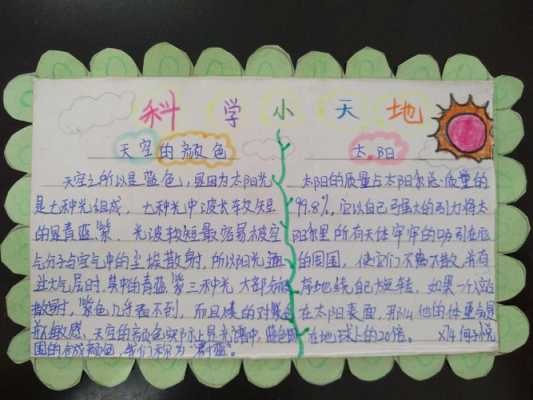 科学小天地
天空的颜色
天空之所以是蓝色,是因为太阳光
是七种光组成,七种光中波长较短
的是青蓝紫,光波较短最容易被空
气分子与空气中的尘埃散射,所以阳光
过大气层时,其中的青蓝紫三种光大部分
散射,紫色几乎看不到,而且
敏感,天空的颜色实际上是光谱中,蓝色
的合成颜色,我们称为"蔚蓝"。
太阳
太阳的质量占太阳系总质量的
99.8%,它以自己强大的引力将太
阳系里所有天体牢牢的吸引在
的周围,使它们不离不散,
地绕自己旋转,如果一个人站
在太阳表面,那么他的体重会是
在地球上的20倍。